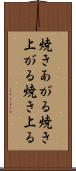 焼きあがる焼き
上がる焼き上る